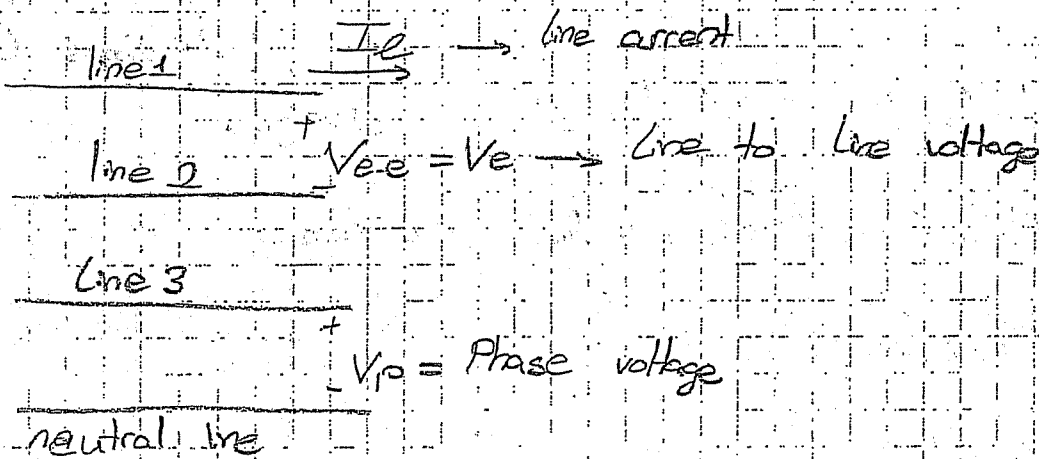 Iℓ → line current
line 1
+
line 2
- Vℓ-ℓ = Vℓ → Line to Line voltage
Line 3
+
- Vp = Phase voltage
neutral line